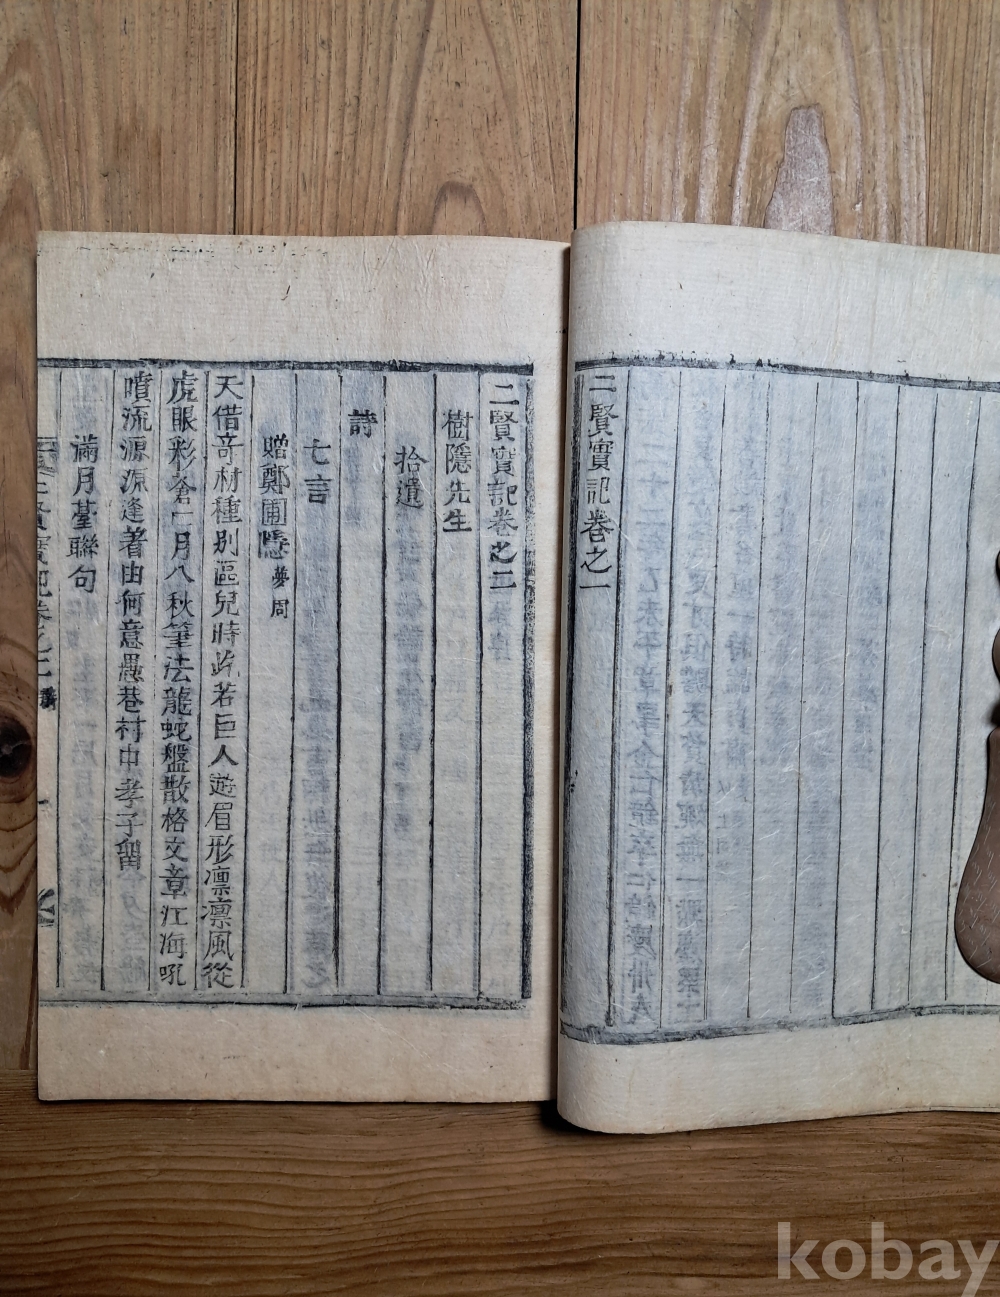 二賢實記卷之一
二賢實記卷之二
樹隱先生
拾遺
詩
七言
贈鄭圃隱 夢周
天借奇材種別區兒時屹若巨人遊眉形凛凛風從
虎眼彩蒼蒼月八秋筆法龍蛇盤散格文章江海吼
噴流源源逢着由何意愚巷村中孝子留
滿月臺聯句
二賢實記卷之二
kobay